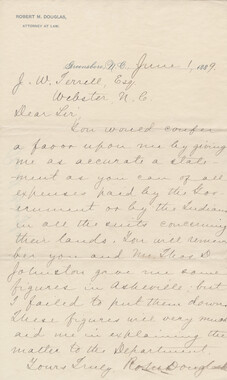 ROBERT M. DOUGLAS,
ATTORNEY AT LAW.
Greensboro, N.C. June 1, 1889.
J. W. Terrell, Esq
Webster N.C.
Dear Sir,
You would confer
a favor upon me by giving
me as accurate a state-
ment as you can of all
expenses paid by the Gov-
ernment or by the Indians
in all the suits concerning
their lands. You will remem
ber you and Mr. Thos D
Johnston gave me some
figures in Asheville, but
I failed to put them down.
These figures will very much
aid me in explaining the
matter to the Department
Yours Truly Robt M Douglas